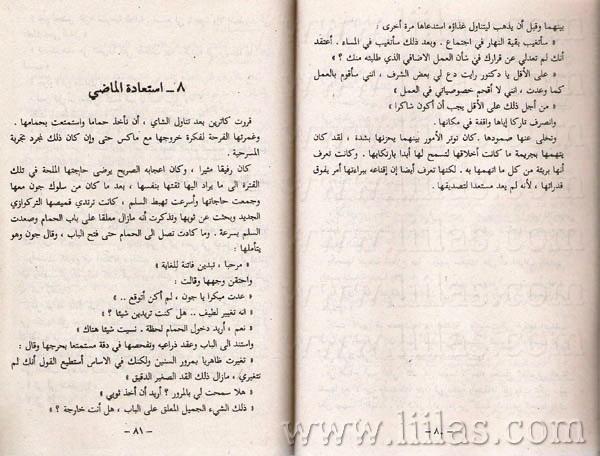 بينهما وقبل أن يذهب ليتناول غذاؤه استدعاها مرة أخرى :
« سأتغيب بقية النهار في اجتماع . وبعد ذلك سأتغيب في المساء . أعتقد
أنك لم تعدلي عن قرارك في شأن العمل الاضافي الذي طلبته منك ؟ »
« على الأقل يا دكتور رايت دع لي بعض الشرف ، انني سأقوم بالعمل
كما وعدت ، انني لا أقحم خصوصياتي في العمل »
« من أجل ذلك على الأقل يجب أن أكون شاكرا »
وانصرف تاركا إياها واقفة في مكانها .
وتخلى عنها صمودها . كان توتر الأمور بينهما يحزنها بشدة ، لقد كان
يتهمها بجريمة ما كانت أخلاقها لتسمح لها أبدا بارتكابها . وكانت تعرف
أنها بريئة من كل ما اتهمها به . لكنها تعرف أيضا إن إقناعه ببراءتها أمر يفوق
قدراتها ، لأنه لم يعد مستعدا لتصديقها .
– ٨٠ –
٨ – استعادة الماضي
قررت كاترين بعد تناول الشاي ، أن تأخذ حماما واستمتعت بحمامها .
وغمرتها الفرحة لفكرة خروجها مع ماكس حتى وإن كان ذلك لمجرد تجربة
المسرحية .
كان رفيقا مثيرا ، وكان اعجابه الصريح يرضى حاجتها الملحة في تلك
الفترة الى ما يراد اليها ثقتها بنفسها ، بعد ما كان من سلوك جون معها
وجمعت حاجاتها وأسرعت تهبط السلم ، كانت ترتدي قميصها التركوازي
الجديد وبحثت عن ثوبها وتذكرت أنه مازال معلقا على باب الحمام وصعدت
السلم بسرعة . وما كادت تصل الى الحمام حتى فتح الباب ، وقال جون وهو
يتأملها :
« مرحبا ، تبدين فاتنة للغاية »
واحتقن وجهها وقالت :
« عدت مبكرا يا جون ، لم أكن أتوقع .. »
« انه تغيير لطيف .. هل كنت تريدين شيئا ؟ »
« نعم ، أريد دخول الحمام لحظة . نسيت شيئا هناك »
واستند الى الباب وعقد ذراعيه وتفحصها في دقة مستمتعا بحرجها وقال :
« تغيرت ظاهريا بمرور السنين ولكنك في الاساس أستطيع القول أنك لم
تتغيري ، مازال ذلك القد الصغير الدقيق »
« هلا سمحت لي بالمرور ؟ أريد أن أخذ ثوبي »
« ذلك الشيء الجميل المعلق على الباب ، هل أنت خارجة ؟ »
– ٨١ –
www.liilas.com